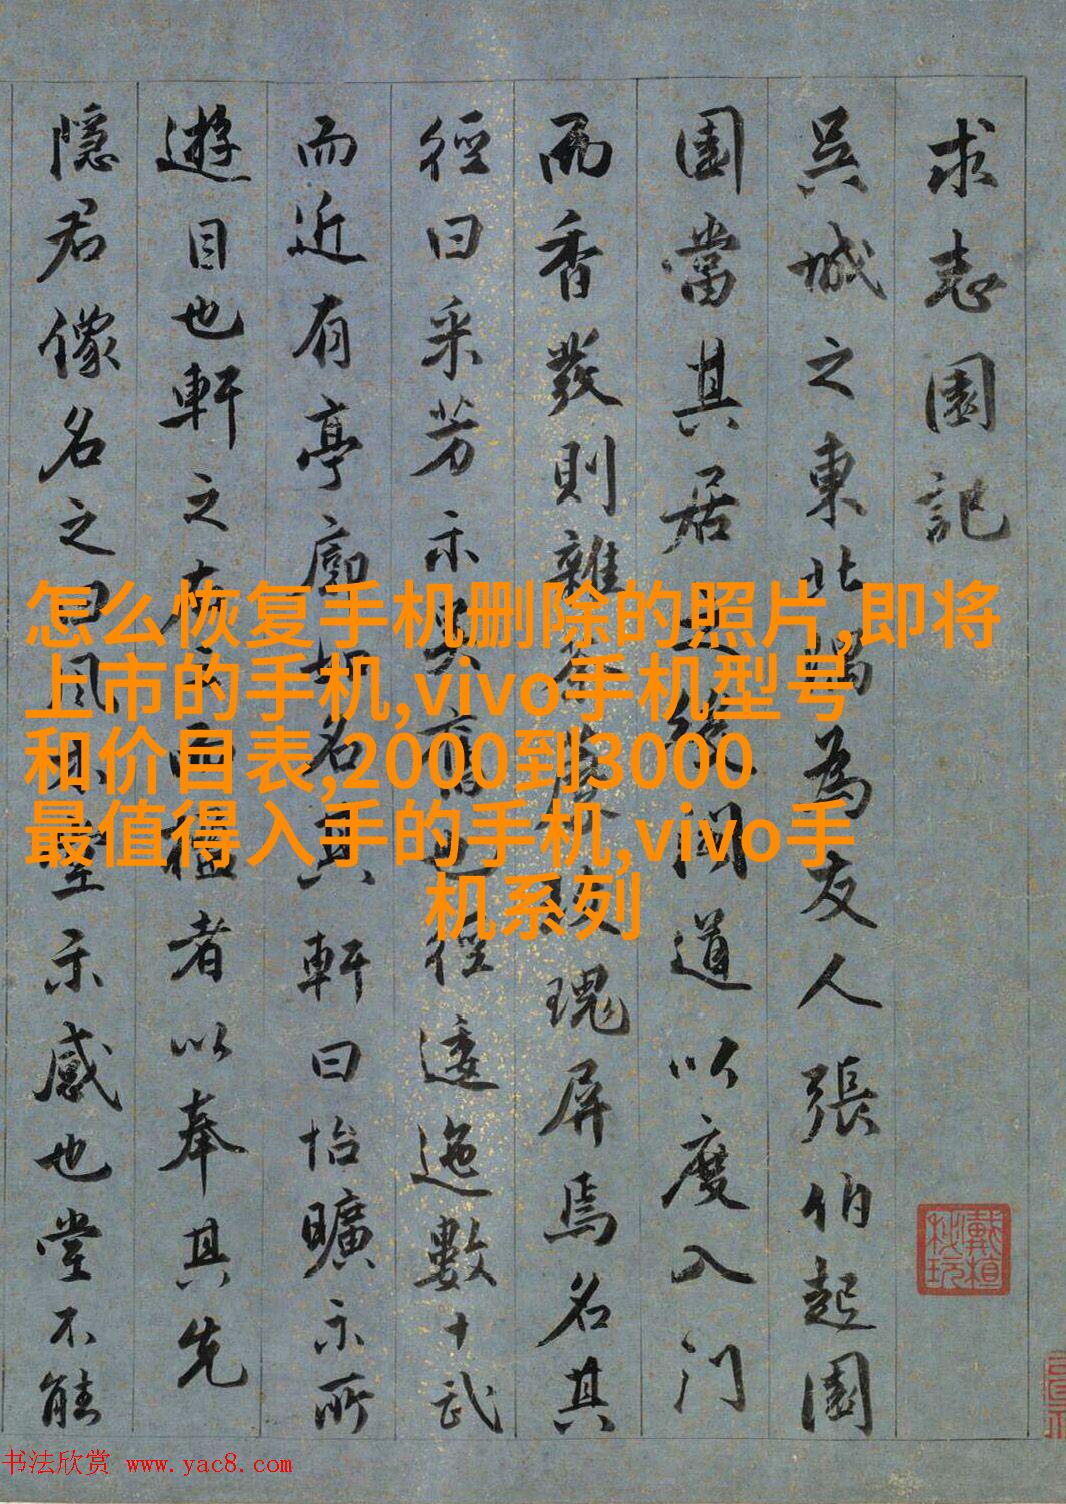 求志園記
吳城之東北隅為友人張伯起園
園當其居之後閣道以度入門
而香發則雜荼蘼玫瑰屏焉名其
徑曰采芳示吳舊也徑逶迤數十武
而近有亭廓如名其軒曰怡曠示所
遊目也軒之右而楹者以奉其先
隱君像名之曰風堂示感也堂不能
怎么恢复手机删除的照片,即将
上市的手机,vivo手机型号
和价目表,2000到3000
最值得入手的手机,vivo手
机系列
戴植
秘玩
书法欣赏 www.yac8.com